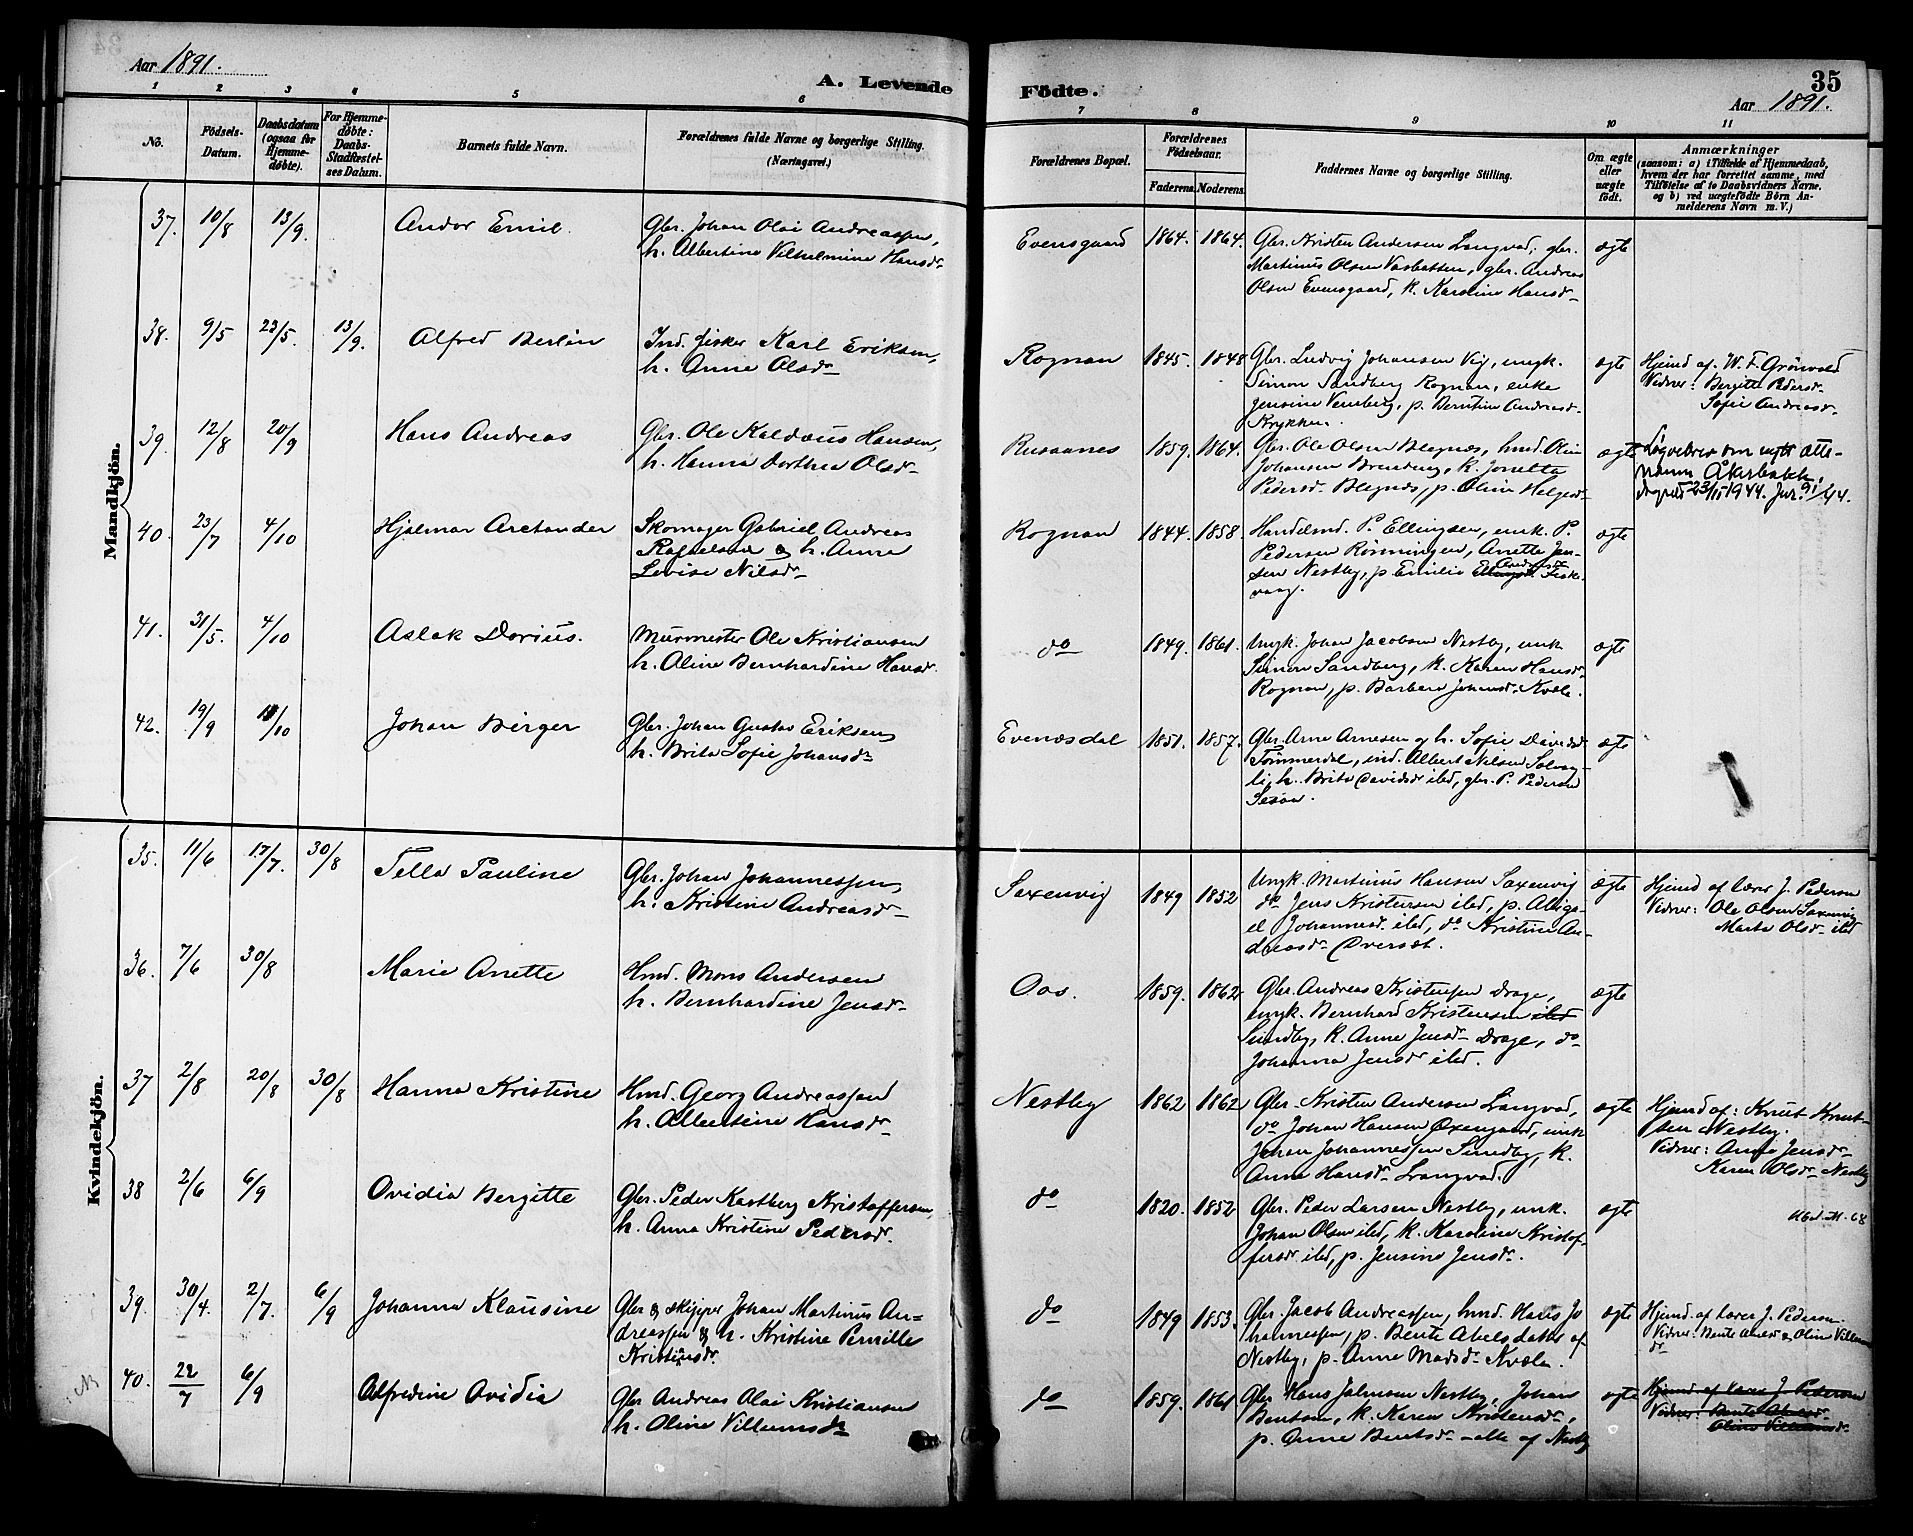 Aar 1891.
A. Levende
Födte.
35
Aar 1891.
1 2 3 4 5 6 7 8 9 10 11
No.
Födsels-
Datum.
Daabsdatum
(ogsaa for
Hjemme-
døbte).
For Hjemme-
døbte:
Daabs-
Stadfæstel-
ses Datum.
Barnets fulde Navn.
Forældrenes fulde Navne og borgerlige Stilling.
(Næringsvei.)
Forældrenes Bopæl.
Forældrenes
Fødselsaar.
Faderens. Moderens.
Faddernes Navne og borgerlige Stilling.
Om ægte
eller
uægte
født.
Anmærkninger
(saasom: a) i Tilfælde af Hjemmedaab,
hvem der har forrettet samme, med
Tilføielse af to Daabsvidners Navne.
og b) ved uægtefødte Børn An-
melderens Navn m. V.)
Mandkjön.
37. 10/8 13/9. Andor Emil.
Gbr. Johan Olai Andreassen,
h. Albertine Vilhelmine Hansdr
Evensgaard 1864. 1864.
Gbr. Kristen Andersen Langvad, gbr.
Martinus Olsen Vasbotten, gbr. Andreas
Olsen Evensgaard, k. Karoline Hansdr
ægte
38. 9/5 23/5. 13/9. Alfred Berlin
Ind. fisker Karl Eriksen,
h. Anne Olsdr
Rognan 1845. 1848
Gbr. Ludvig Johansen Vig, ungk.
Simon Sandberg Rognan, enke
Jensine Vensberg, p. Berntine Andreasdr
ægte
Hjemd af. W. F. Grönvold
Vidner: Bergitte Pedersdr
Sofie Andreasdr
39. 12/8 20/9 Hans Andreas
Gbr. Ole Kaldæus Hansen,
h. Hanna Dorthea Olsdr
Rusaanes 1859. 1864.
Gbr. Ole Olsen Blegnæs, hmd. Olin
Johansen Brenberg, k. Jonetta
Pedersdr Blegnæs, p. Oline Helgesdr
ægte
navn Åkerbakk
23/11 1944. Jnr. 91/44.
40. 23/7 4/10 Hjalmar Arctander
Skomager Gabriel Andreas
Rafaelsen & h. Anne
Lovise Nilsdr
Rognan 1844. 1858.
Handelsmd. P. Ellingsen, unk. P.
Pedersen Rönningen, Anette Jan-
sen Nestby, p Emilie Ellingsdr Fisk-
vaag.
ægte
41. 31/5. 4/10 Aslak Dorius.
Murmester Ole Kristiansen
h. Oline Bernhardine Hansdr.
do 1849. 1861.
Ungk. Johan Jacobsen Nestby, unk
Simon Sandberg, k. Karen Hansdr
Rognan, p. Barbara Johansdr Kvæle.
ægte
42. 19/9 /10 Johan Birger
Gbr. Johan Gustav Eriksen,
h. Brita Sofie Johansdr
Evenesdal 1851. 1857.
Gbr. Arne Arnesen og h. Sofie Davidsdr
Tømmerdal, ind. Albert Nilsen Solvag-
li, h. Brita Davidsdr ibd, gbr. P. Pedersen
ægte
Kvindekjön.
35. 11/6 17/7. 30/8 Tella Pauline
Gbr. Johan Johannessen,
h. Kristine Andreasdr
Saxenvig 1849 1852
Ungk. Martinus Hansen Saxenvig
do Jens Kristensen ibd, p. Abiga-
el Johannesd. ibd, do Kristine An-
dreasdr Eversæt.
ægte
Hjemd af lærer J. Pedersen
Vidner: Ole Olsen Saxenvig
Marta Olsdr ibd
36. 7/6 30/8 Marie Anette
Hmd. Mons Andersen
h. Bernhardine Jensdr
Oos. 1859. 1862
Gbr. Andreas Kristensen Drage,
ungk. Bernhard Kristensen ibd
Sundby, k. Anne Jensdr Drage, do
Johanna Jensdr ibd.
ægte
37 2/8 20/8 30/8 Hanna Kristine
Hmd. Georg Andreassen
h. Albertine Hansdr
Nestby 1862 1862
Gbr. Kristen Andersen Langvad,
do Johan Hansen Oxengaard, unk
Johan Johannessen Sundby, k.
Anna Hansdr Langvad.
ægte
Hjemd af: Knut Knut-
sen Nestby.
Vidner: Anne Jensdr
Karen Olsdr Nestby
38 2/6 6/9 Ovidia Bergitte
Gbr. Peder Kastberg Kristoffersen,
h. Anna Kristine Pedersdr.
do 1820. 1852
Gbr. Peder Larsen Nestby, unk.
Johan Olsen ibd, k. Karoline Kristof-
fersdr ibd, p. Jensine Jensdr.
ægte
39. 30/4. 2/7. 6/9 Johanna Klausine
Gbr & skipper Johan Martinus An-
dreassen & h. Kristine Pernille
Kristiansdr.
do 1849 1853.
Gbr. Jacob Andreassen, hmd. Hans Jo
hannessen, p. Bente Abelsdatter af
Nestby, p. Anne Madsdr Kvæle.
ægte
Hjemd. af lærer J. Pedersen
Vidner: Bente Abelsdr & Oline Villumsen
dr
40. 22/7 6/9 Alfredine Ovidia
Gbr Andreas Olai Kristiansen
h. Oline Villumsdr
do 1859. 1861
Gbr Hans Jalmsen Nestby, Johan
Bentsen, k. Karen Kristensdr,
p. Anne Bentsdr – alle af Nestby
ægte
Hjemd. af lærer J. Pedersen
Vidner: Bente Abelsdr
Oline Villumsdr